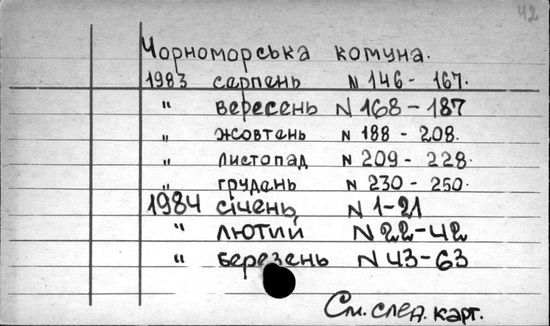 42
Чорноморська комуна.
1983 серпень N 146 - 167.
" вересень N 168 - 187
" жовтень N 188 - 208.
" листопад N 209 - 228.
" грудень N 230 - 250.
1984 січень N 1-21
" лютий N 22-42
" березень N 43-63
См. след. карт.